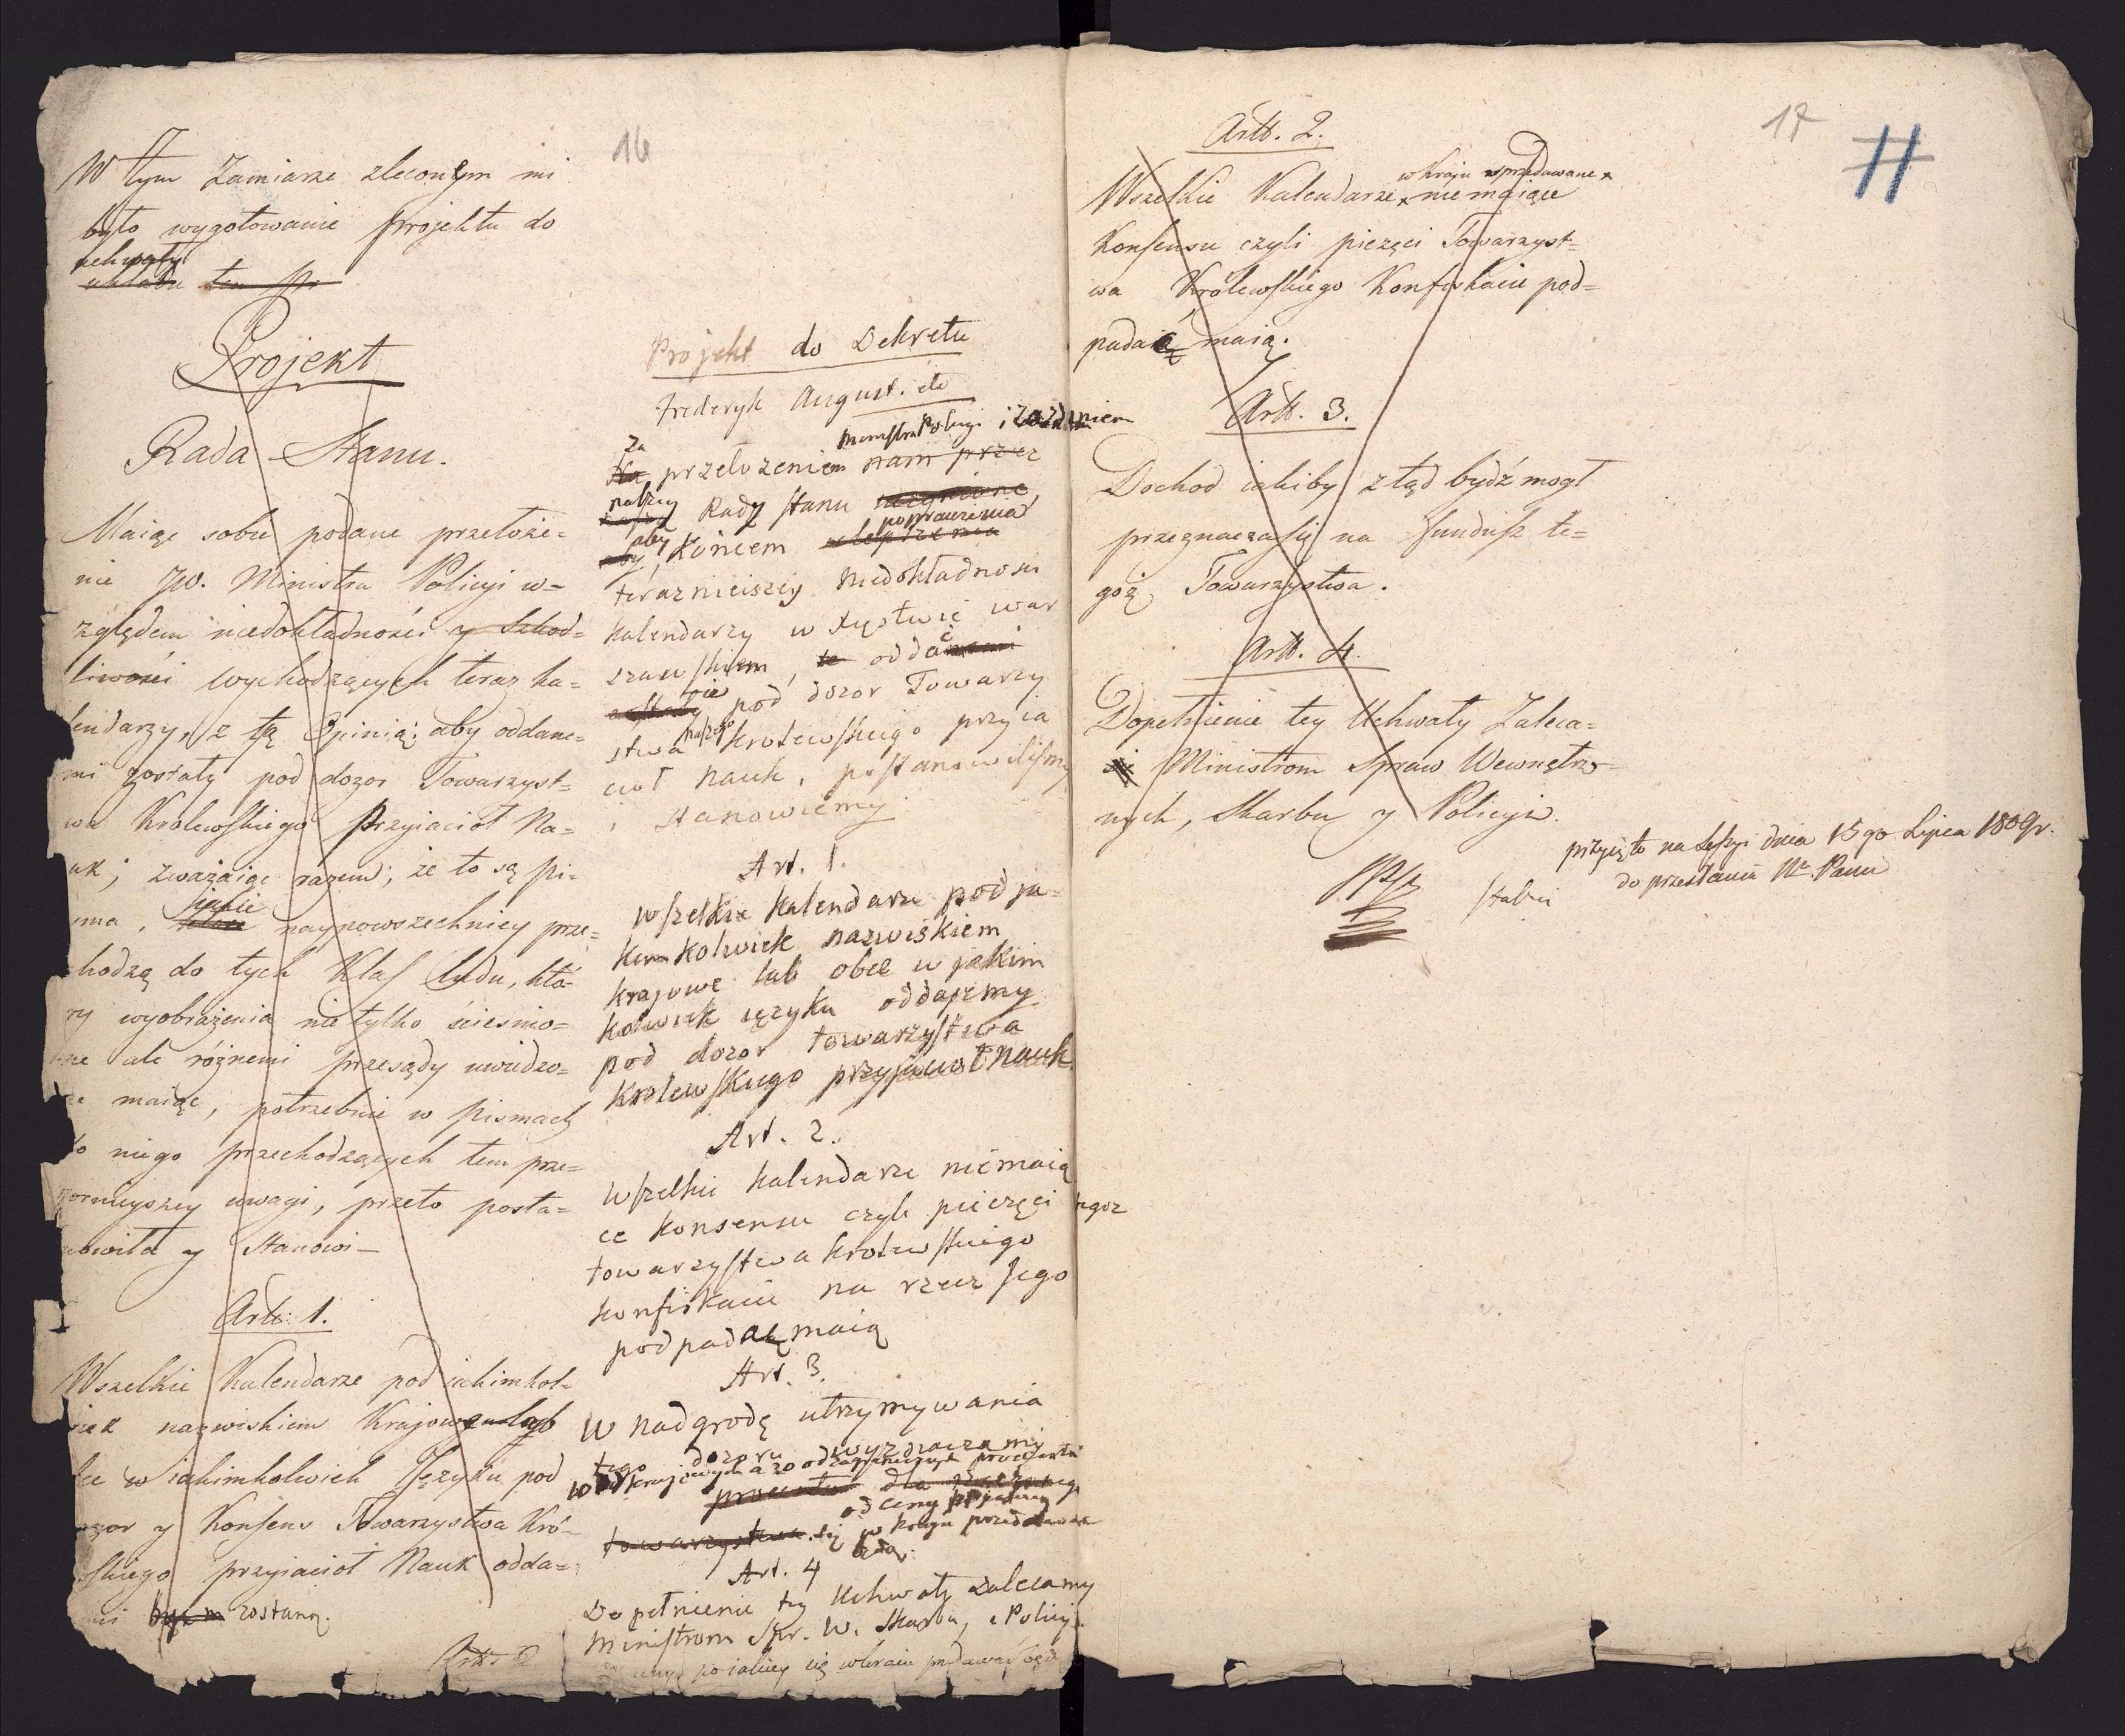 16
W tym Zamiarze zleconem mi
było wygotowanie projektu do
uchwały
układu ten pr
Projekt
Rada Stanu.
Maiąc sobie podane przełoże=
nie JW. Ministra Policyi w=
zględem niedokładności y Szkod=
liwości wychodzących teraz ka=
lendarzy, z tą Opinią; aby oddane=
mi zostały pod dozor Towarzyst=
wa Krolewskiego Przyiaciół Na=
uk; zważaiąc razem; że to są pi=
sma, które naypowszechniey prze=
chodzą do tych Klas ludu, któ=
ry wyobrażenia nie tylko ścieśnio=
ne ale różnemi przesądy uwiedzo=
ne maiąc, potrzebuie w pismach
do niego przechodzących tem prze=
zornieyszey uwagi, przeto posta=
nowiła y Stanowi—
Artt: 1.
Wszelkie Kalendarze pod iakimkol=
wiek nazwiskiem Krajowe lub
w iakimkolwiek Języku pod
dozor y Konsens Towarzystwa Kró=
lewskiego przyiaciół Nauk odda=
zostaną.
Projekt do Dekretu
Frederyk August. etc
Ministra Policyi i
Za
Na przełożeniem nam przez
naszey Rady Stanu
poprawienia
aby, końcem ulepszenia
teraznieiszey niedokładnosci
kalendarzy w Xięstwie war
szawskiem, te oddać
pod dozor Towarzy
stwa naszego krolewskiego przyia
ciół nauk, postanowiliśmy
i stanowiemy
Art. 1.
wszelkie kalendarze pod ja-
kiem kolwiek nazwiskiem
krajowe lub obce w jakim
kolwiek ięzyku oddajemy
pod dozor towarzystwa
krolewskiego przyiacioł nauk
Art. 2.
wszelkie kalendarze niemaią
ce konsensu czyli pieczęci tegoz
towarzystwa krolewskiego
konfiskacie na rzecz Jego
podpadać maią
Art. 3.
w nadgrodę utrzymywania
tego dozoru wyznaczamy
od krajowych a 20 od zagranicznych
procentu dla
od ceny po jakiey
towarzystwa się w kraju przedawać
będą.
Art. 4
Dopełnienie tey Uchwały zalecamy
Ministrom Spr. W. Skarbu, i Policyi.
ceny po iakiey się w kraiu przedawać będą
17
Artt. 2.
w kraju sprzedawane
Wszelkie Kalendarze nie maiące
Konsensu czyli pieczęci Towarzyst=
wa Królewskiego Konfiskacie pod=
padać maią.
Artt. 3.
Dochod iakiby ztąd bydź mogł
przeznacza się na fundusz te=
goż Towarzystwa.
Artt. 4.
Dopełnienie tey Uchwały Zaleca=
się Ministrom Spraw Wewnętrz=
nych, Skarbu y Policyi.
przyięto na Sessyi dnia 15go Lipca 1809r.
do przesłania Nr. Panu